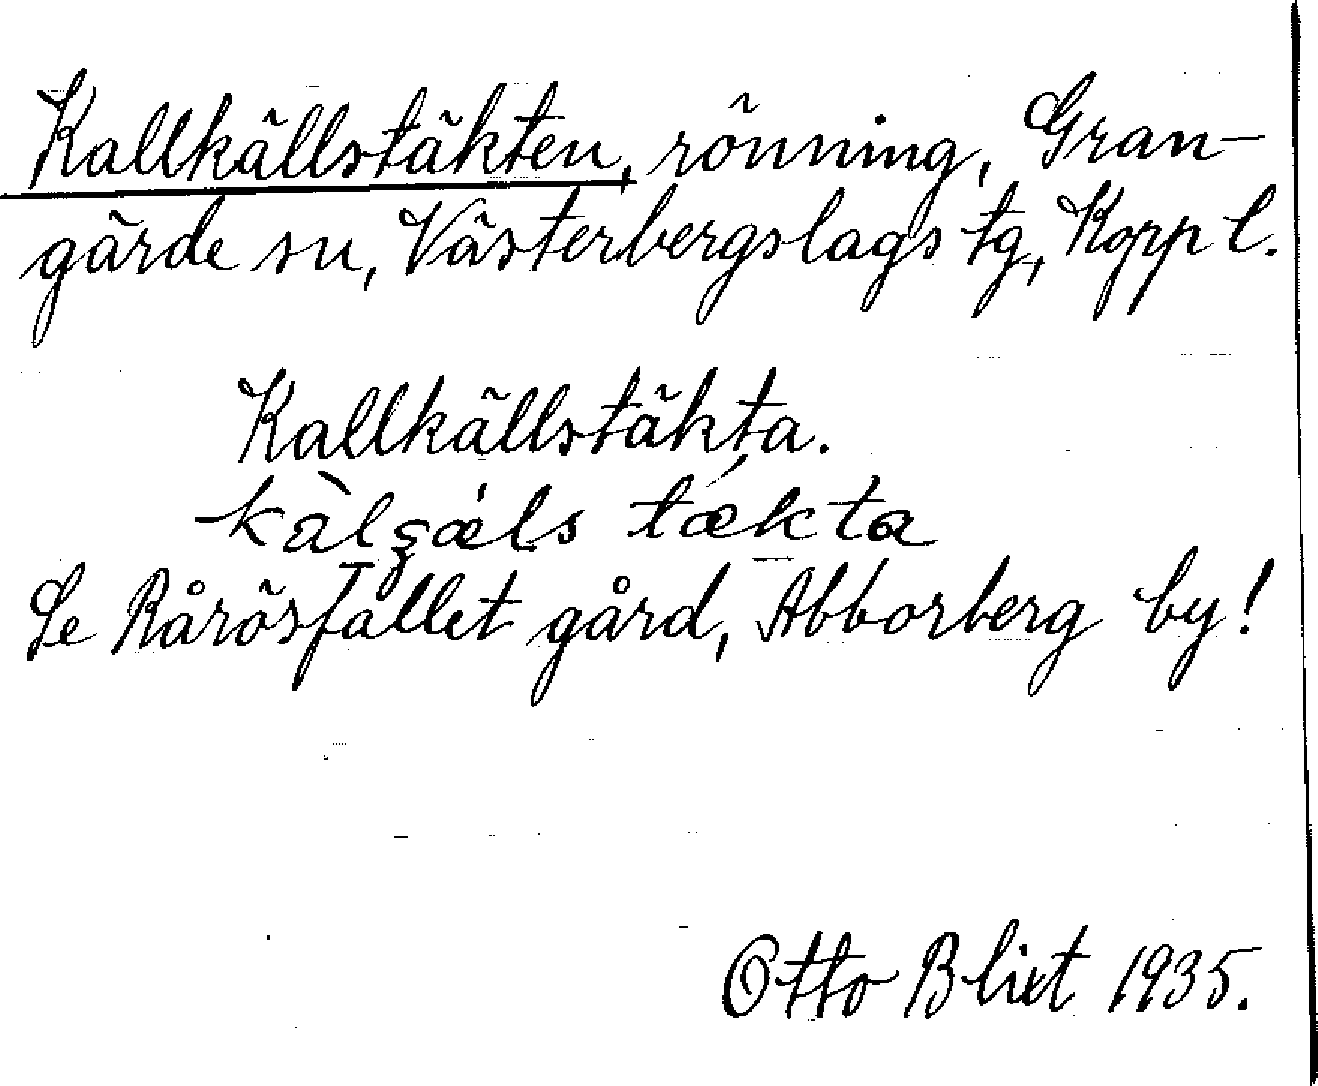 Kallkällstäkten, rönning, Gran-
gärde sn, Västerbergslags tg, Kopp l.
Kallkällstäkta.
kàlçæ̀ls tǽkta
Se Rårösfallet gård, Abborberg by!
Otto Blixt 1935.